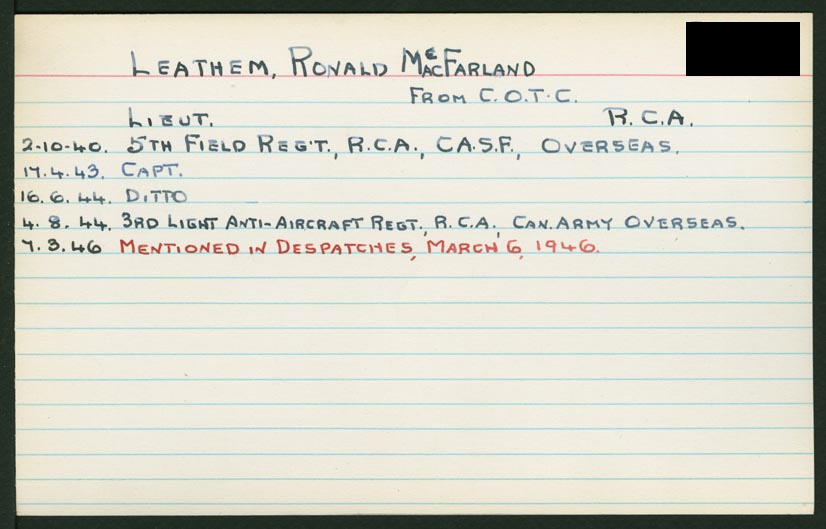 LEATHEM, RONALD McMACFARLAND
FROM C.O.T.C.
LIEUT. R.C.A.
2-10-40. 5TH FIELD REG'T., R.C.A., C.A.S.F., OVERSEAS.
17.4.43. CAPT.
16.6.44. DITTO
4.8.44. 3RD LIGHT ANTI-AIRCRAFT REGT., R.C.A., CAN. ARMY OVERSEAS.
7.3.46 MENTIONED IN DESPATCHES, MARCH 6, 1946.